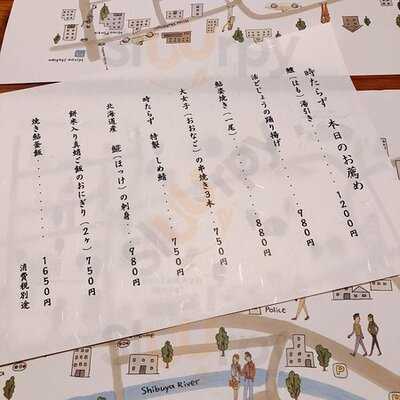 時たらず 本日のお薦め
鱧（はも）湯引き・・・・・1200円
活どじょうの踊り揚げ・・・・・980円
鮎姿焼き（一尾）・・・・・880円
大女子（おおなご）の串焼き3本・・750円
時たらず 特製 しめ鯖・・・・750円
北海道産 𩸽（ほっけ）の刺身・・・980円
餅米入り真鯛ご飯のおにぎり（2ヶ）750円
焼き鮎釜飯・・・・・・・1650円
消費税別途
Police
Shibuya River